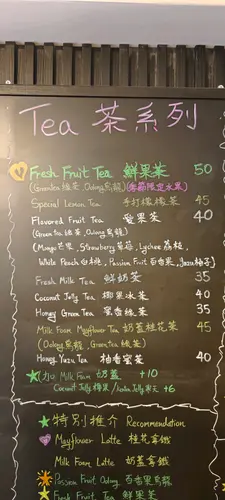 Tea 茶系列
Fresh Fruit Tea 鮮果茶 50
(Green tea 綠茶, Oolong 烏龍) (季節限定水果)
Special Lemon Tea 手打檸檬茶 45
Flavored Fruit Tea 愛果茶 40
(Green tea 綠茶, Oolong 烏龍)
(Mango 芒果, Strawberry 草莓, Lychee 荔枝,
White Peach 白桃, Passion Fruit 百香果, Yuzu 柚子)
Fresh Milk Tea 鮮奶茶 35
Coconut Jelly Tea 椰果冰茶 40
Honey Green Tea 蜜香綠茶 35
Milk Foam Mayflower Tea 奶蓋桂花茶 45
(Oolong 烏龍, Green tea 綠茶)
Honey Yuzu Tea 柚香蜜茶 40
(加) Milk Foam 奶蓋 +10
Coconut Jelly 椰果 / Jelly +6
特別推介 Recommendation
Mayflower Latte 桂花拿鐵
Milk Foam Latte 奶蓋拿鐵
Passion Fruit Oolong 百香果烏龍
Fresh Fruit Tea 鮮果茶